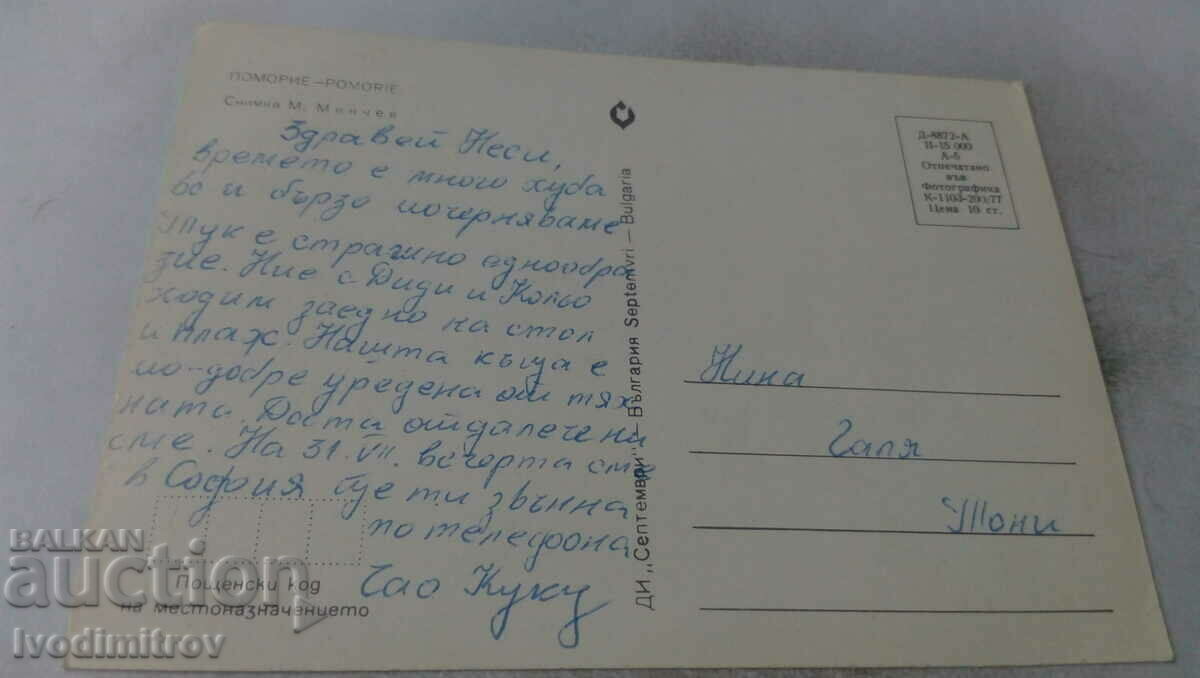 ПОМОРИЕ – POMORIE
Снимка М. Минчев
Здравей Неси,
времето е много хуба
во и бързо почерняваме
Тук е страшно еднообра
зие. Ние с Диди и Кольо
ходим заедно на стол
и плаж. Нашта къща е
по-добре уредена от тях
ната. Доста отдалечени
сме. На 31. VII. вечерта сме
в София ще ти звънна
по телефона
Чао Куку
Пощенски код
на местоназначението
ДИ „Септември" – България Septemvri – Bulgaria
Д-8872-А
II-15 000
А-6
Отпечатано
във
Фотографика
К-1103-200/77
Цена 10 ст.
Нина
Галя
Тони
BALKAN
auction
Ivodimitrov